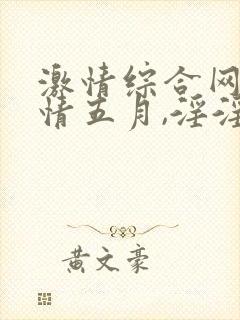 激情综合网
情五月,淫淫
黄文豪